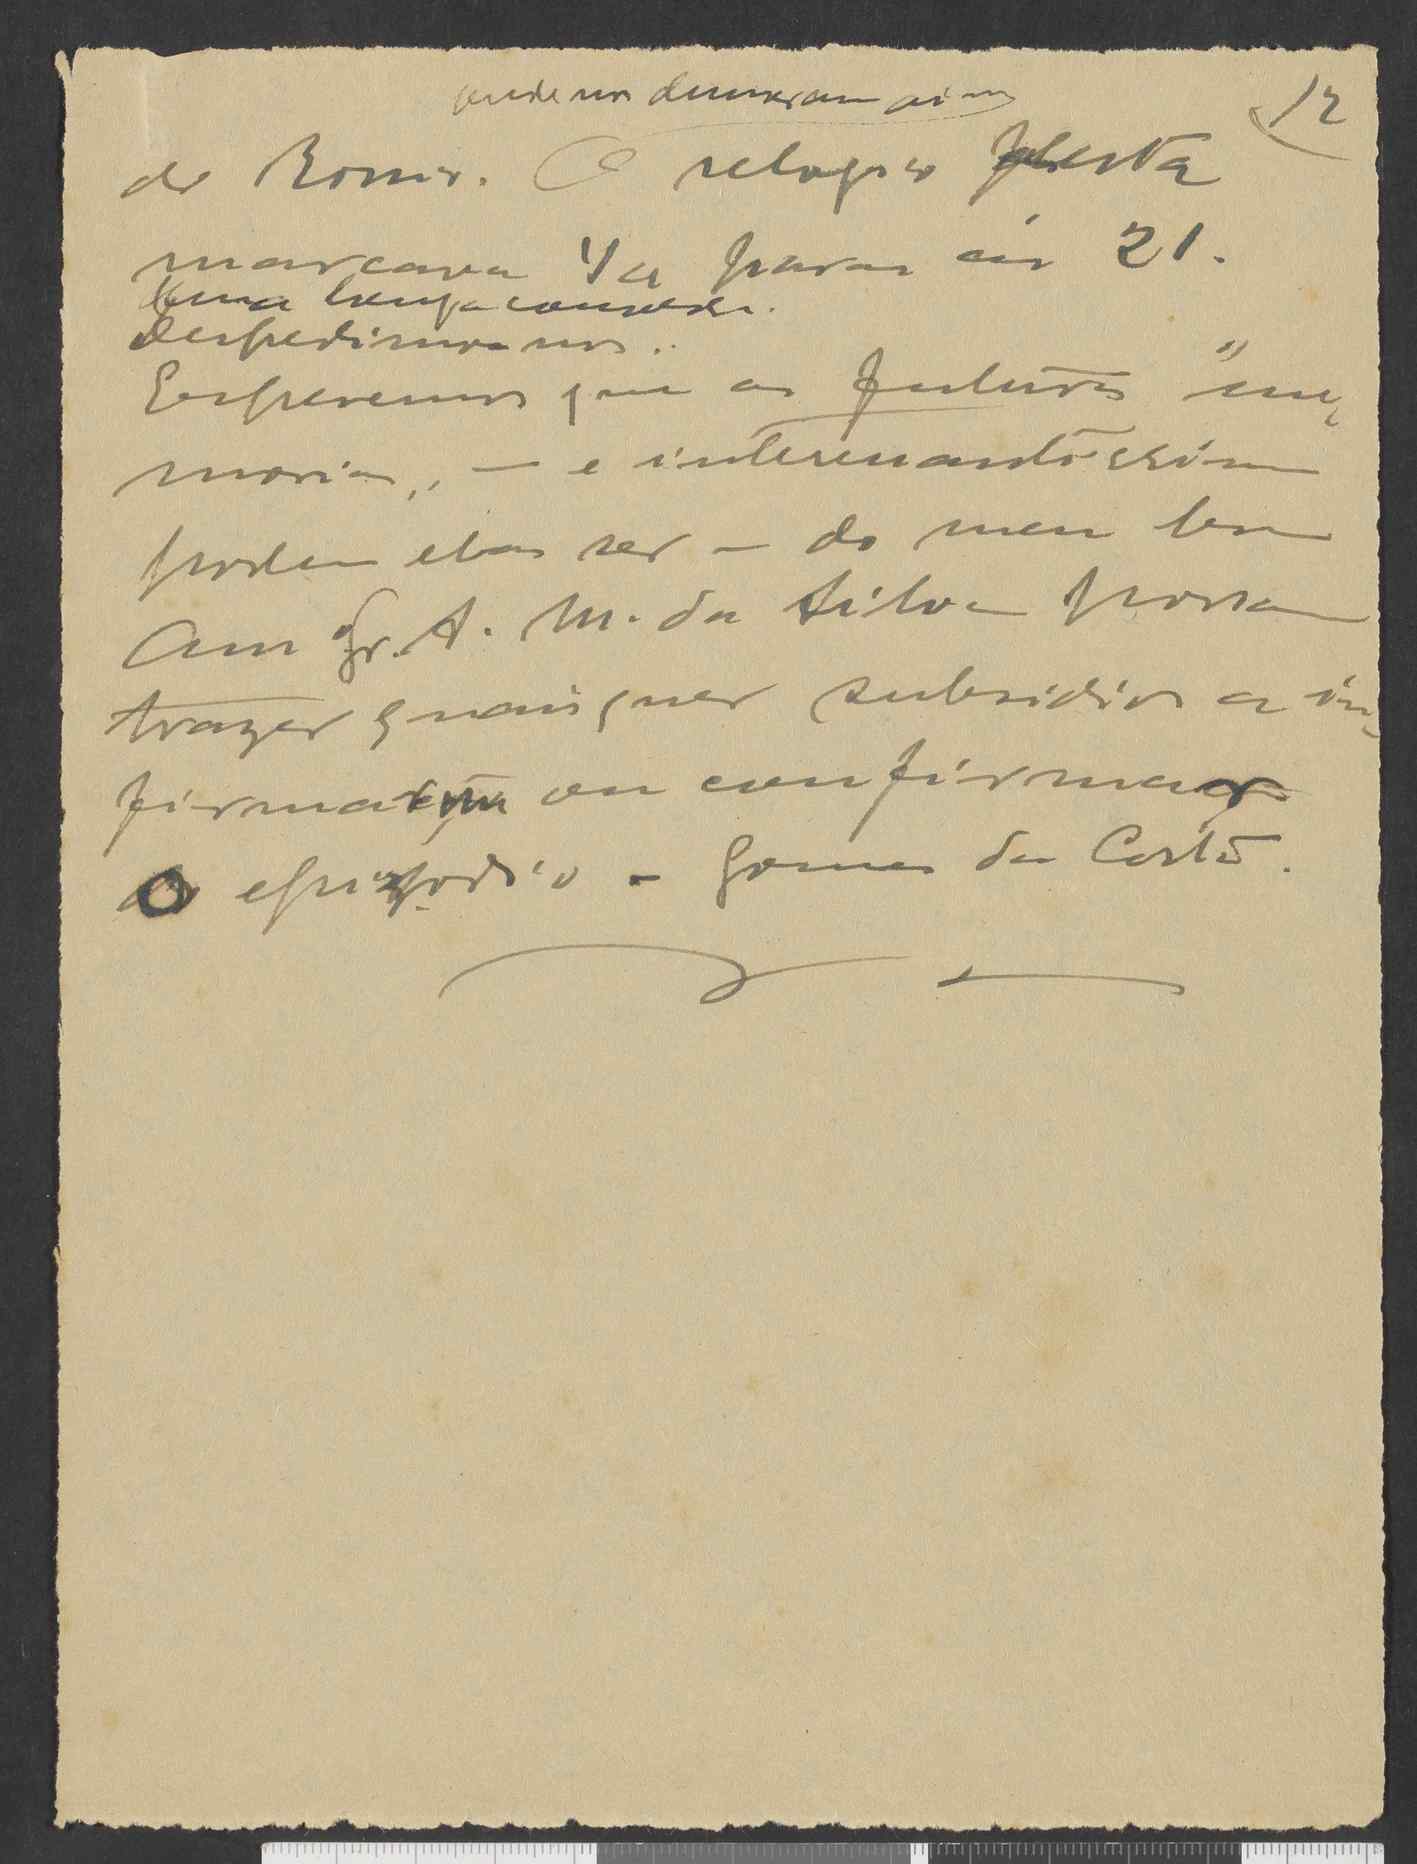 12
do Rossio. O relogio desta
marcava 1/4 para as 21.
Uma longa conversa.
Despedimo-nos..
Esperemos que as futuras "me-
morias„ — e interessantissimas
podem elas ser — do meu bom
Am Sr. A. M. da Silva possam
trazer quaisquer subsidios a in-
firmarem ou confirmar
o episodio - Gomes da Costa.